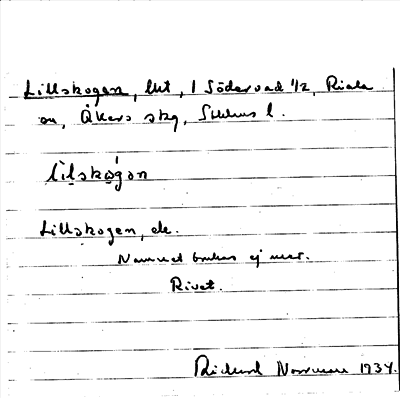 Lillskogen, lht, 1 Södervad 1/2, Riala
sn, Åkers skg, Sthlms l.
lìlskógən
Lillskogen, de.
Namnet brukas ej mer.
Rivet.
Rickard Norrman 1934.